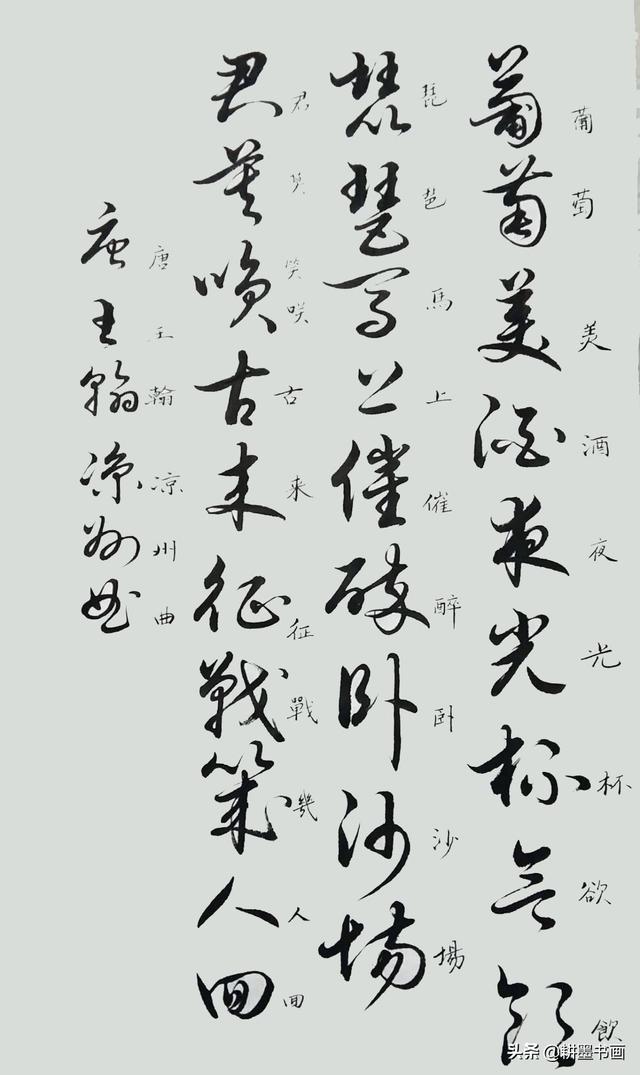 葡萄美酒夜光杯欲飲
葡萄美酒夜光杯欲飲
琵琶馬上催醉卧沙場
琵琶馬上催醉卧沙場
君莫咲古来征戰幾人回
君莫笑咲古来征戰幾人回
唐王翰凉州曲
唐王翰凉州曲
头条 @耕墨书画